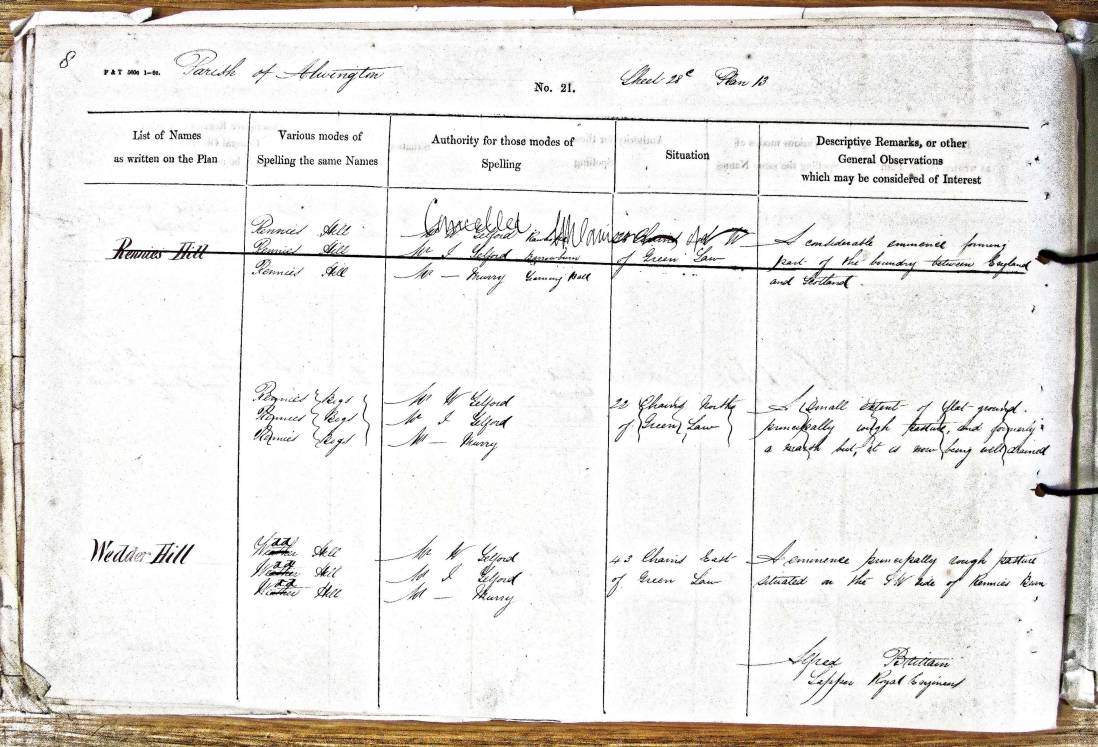 8
Parish of Alwington
No. 21.
Sheet 28c Plan 13
List of Names
as written on the Plan
Various modes of
Spelling the same Names
Authority for those modes of
Spelling
Situation
Descriptive Remarks, or other
General Observations
which may be considered of Interest
Cancelled
Rennies Hill
Rennies Hill
Rennies Hill
Rennies Hill
Mr W Telford
Mr I Telford
Mr — Murry
Chains W
of Green Law
A considerable eminence forming
part of the boundry between England
and Scotland
Rennies Bogs
Rennies Bogs
Rennies Bogs
Mr W Telford
Mr I Telford
Mr — Murry
22 Chains North
of Green Law
A small extent of flat ground
principally rough pasture, and formerly
a marsh but, it is now being well drained
Wedder Hill
Hill
Hill
Hill
Mr W Telford
Mr I Telford
Mr — Murry
43 Chains East
of Green Law
A eminence principally rough pasture
situated on the SW side of Rennies Burn
Alfred Brittain
Sapper Royal Engineers